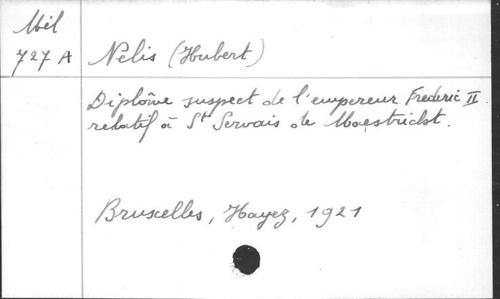 Mél
727 A
Nelis (Hubert)
Diplôme suspect de l'empereur Frederic II
relatif à St Servais de Maestricht.
Bruxelles, Hayez, 1921